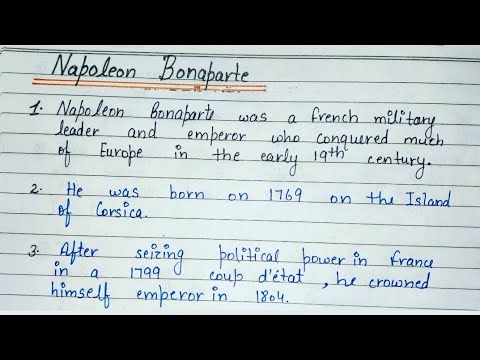 Napoleon Bonaparte
1. Napoleon Bonaparte was a french military
leader and emperor who conquered much
of Europe in the early 19th century.
2. He was born on 1769 on the Island
of Corsica.
3. After seizing political power in france
in a 1799 coup d'état, he crowned
himself emperor in 1804.